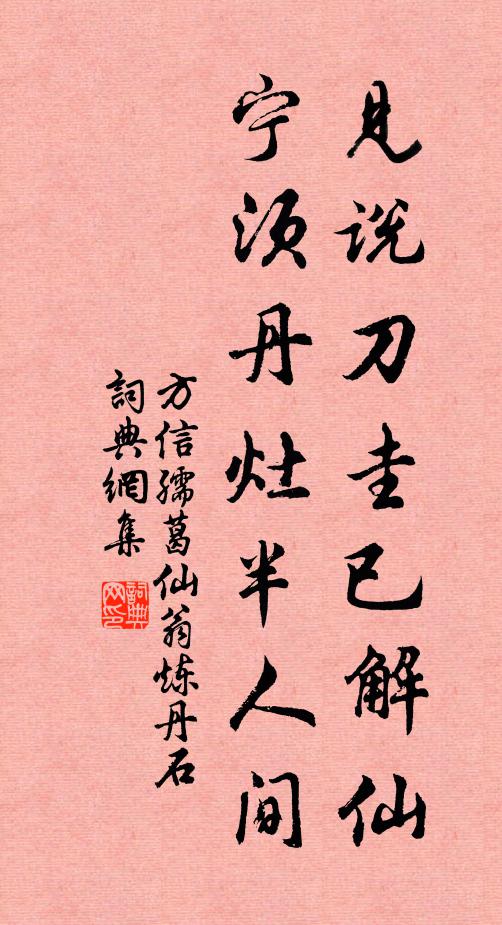 见说刀圭已解仙
宁须丹灶半人间
方信孺葛仙翁炼丹石
詞典網集
詞典网印